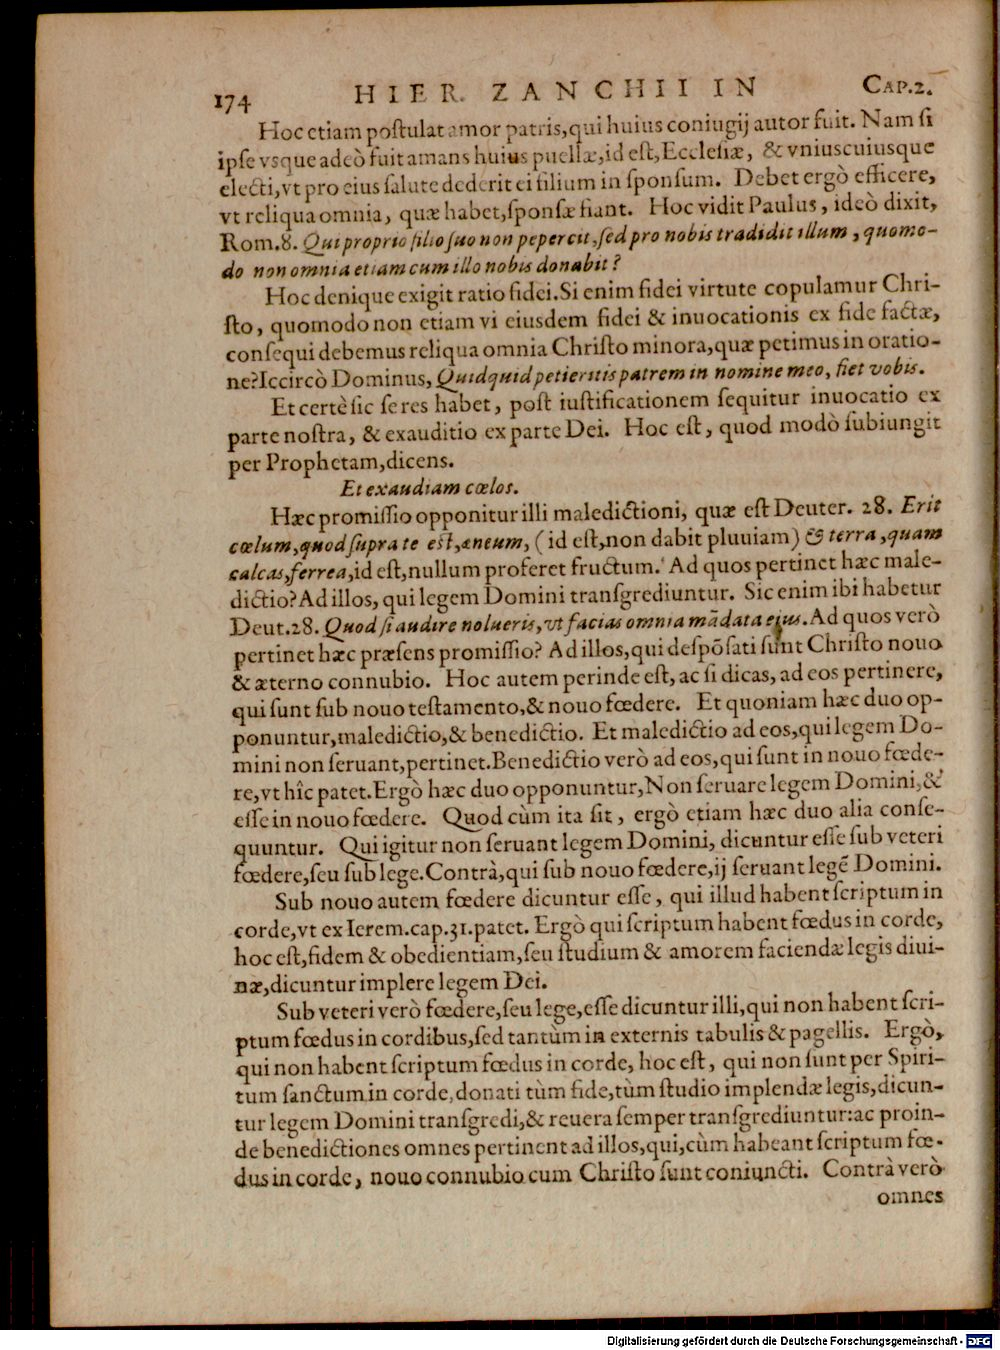 174 HIER. ZANCHII IN CAP.2.
Hoc etiam poſtulat amor patris,qui huius coniugij autor fuit. Nam ſi
ipſe vsque adeò fuit amans huius puellæ,id eſt,Eccleſiæ, & vniuscuiusque
electi,vt pro eius ſalute dederit ei filium in ſponſum. Debet ergò efficere,
vt reliqua omnia, quæ habet,ſponſæ fiant. Hoc vidit Paulus, ideò dixit,
Rom.8. Qui proprio filio ſuo non pepercit,ſed pro nobis tradidit illum, quomo-
do non omnia etiam cum illo nobis donabit?
Hoc denique exigit ratio fidei.Si enim fidei virtute copulamur Chri-
ſto, quomodo non etiam vi eiusdem fidei & inuocationis ex fide factæ,
conſequi debemus reliqua omnia Chriſto minora,quæ petimus in oratio-
ne?Iccircò Dominus, Quidquid petieritis patrem in nomine meo, fiet vobis.
Et certè ſic ſe res habet, poſt iuſtificationem ſequitur inuocatio ex
parte noſtra, & exauditio ex parte Dei. Hoc eſt, quod modò ſubiungit
per Prophetam,dicens.
Et exaudiam cœlos.
Hæc promiſſio opponitur illi maledictioni, quæ eſt Deuter. 28. Erit
cœlum,quod ſupra te eſt,æneum, (id eſt,non dabit pluuiam) & terra,quam
calcas,ferrea,id eſt,nullum proferet fructum. Ad quos pertinet hæc male-
dictio?Ad illos, qui legem Domini transgrediuntur. Sic enim ibi habetur
Deut.28. Quod ſi audire nolueris,vt facias omnia mādata ejus.Ad quos verò
pertinet hæc præſens promiſſio? Ad illos,qui deſpōſati ſunt Chriſto nouo
& æterno connubio. Hoc autem perinde eſt, ac ſi dicas, ad eos pertinere,
qui ſunt ſub nouo teſtamento,& nouo fœdere. Et quoniam hæc duo op-
ponuntur,maledictio,& benedictio. Et maledictio ad eos,qui legem Do-
mini non ſeruant,pertinet.Benedictio verò ad eos,qui ſunt in nouo fœde-
re,vt hîc patet.Ergò hæc duo opponuntur,Non ſeruare legem Domini,&
eſſe in nouo fœdere. Quod cùm ita ſit, ergò etiam hæc duo alia conſe-
quuntur. Qui igitur non ſeruant legem Domini, dicuntur eſſe ſub veteri
fœdere,ſeu ſub lege.Contrà,qui ſub nouo fœdere,ij ſeruant legē Domini.
Sub nouo autem fœdere dicuntur eſſe, qui illud habent ſcriptum in
corde,vt ex Ierem.cap.31.patet. Ergò qui ſcriptum habent fœdus in corde,
hoc eſt,fidem & obedientiam,ſeu ſtudium & amorem faciendæ legis diui-
næ,dicuntur implere legem Dei.
Sub veteri verò fœdere,ſeu lege,eſſe dicuntur illi,qui non habent ſcri-
ptum fœdus in cordibus,ſed tantùm in externis tabulis & pagellis. Ergò,
qui non habent ſcriptum fœdus in corde, hoc eſt, qui non ſunt per Spiri-
tum ſanctum in corde,donati tùm fide,tùm ſtudio implendæ legis,dicun-
tur legem Domini transgredi,& reuera ſemper transgrediuntur:ac proin-
de benedictiones omnes pertinent ad illos,qui,cùm habeant ſcriptum fœ-
dus in corde, nouo connubio cum Chriſto ſunt coniuncti. Contrà verò
omnes
Digitalisierung gefördert durch die Deutsche Forschungsgemeinschaft - DFG